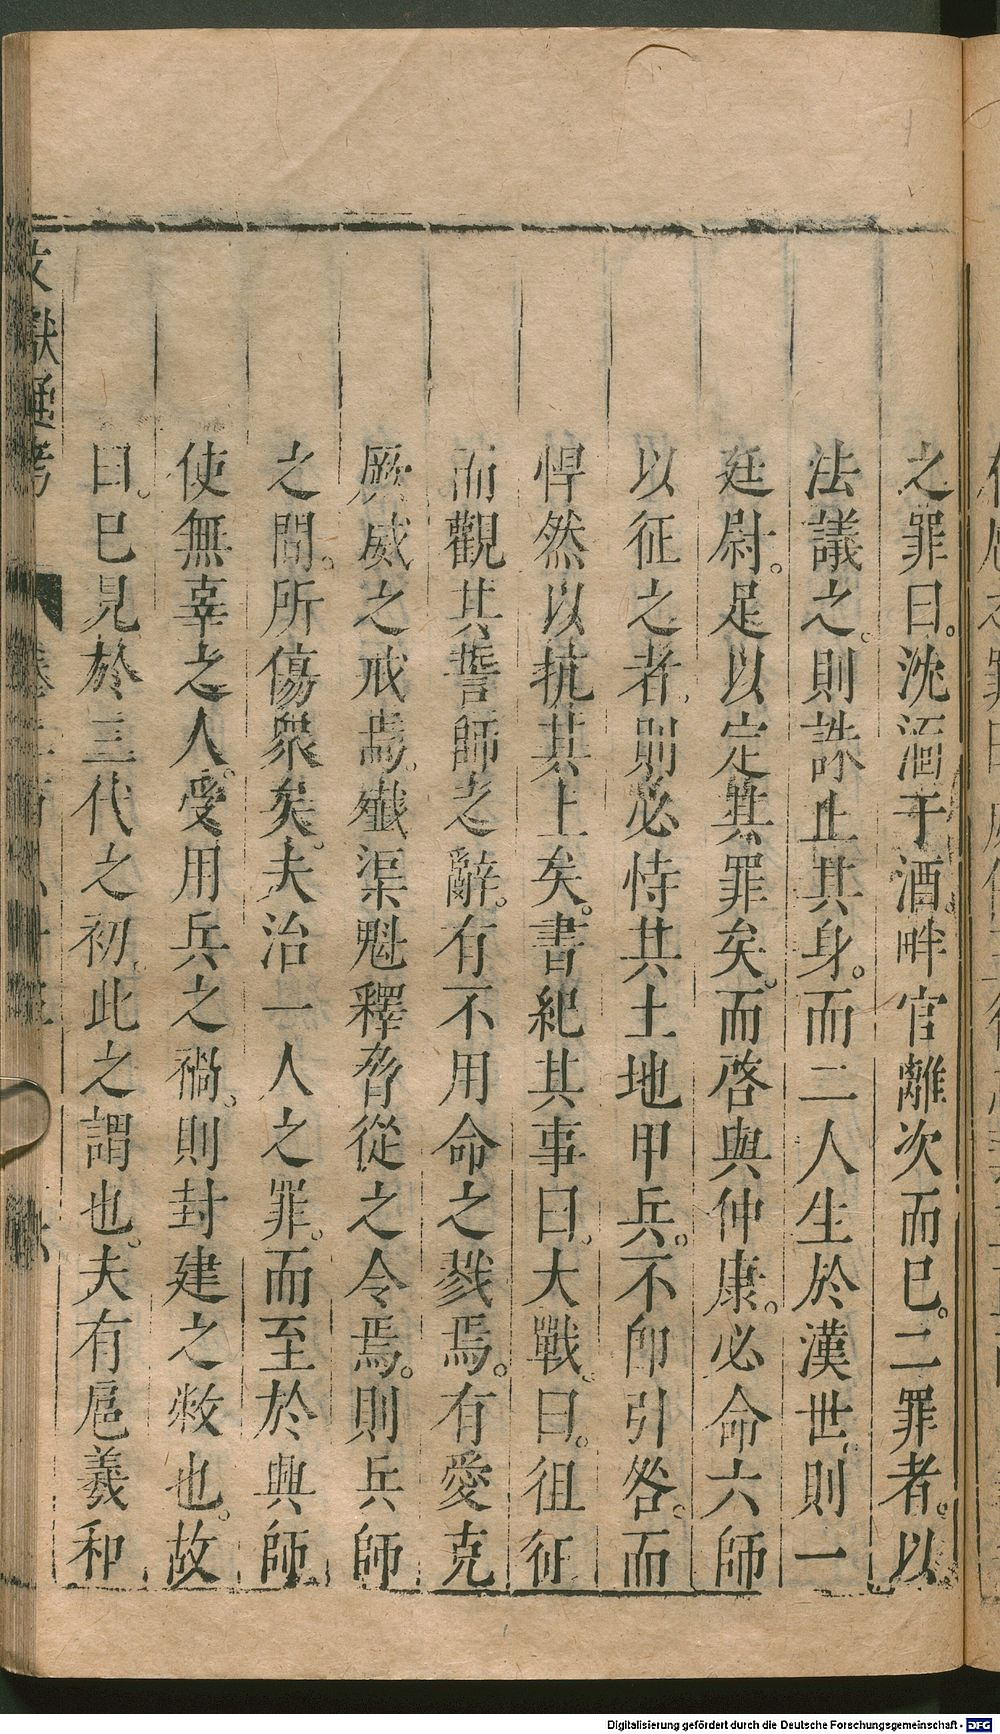 之罪曰。沈湎于酒。畔官離次而巳。二罪者。以
法議之。則誅止其身。而二人生於漢世。則一
廷尉。足以定其罪矣。而啓與仲康。必命六師
以征之者。則必恃其土地甲兵。不卽引咎。而
悍然以抗其上矣。書紀其事曰。大戰。曰。徂征
而觀其誓師之辭。有不用命之戮焉。有愛克
厥威之戒焉。殲渠魁釋脅從之令焉。則兵師
之間。所傷衆矣。夫治一人之罪。而至於興師
使無辜之人。受用兵之禍。則封建之敝也。故
曰。巳見於三代之初。此之謂也。夫有扈羲和
文獻通考
Digitalisierung gefördert durch die Deutsche Forschungsgemeinschaft - DFG